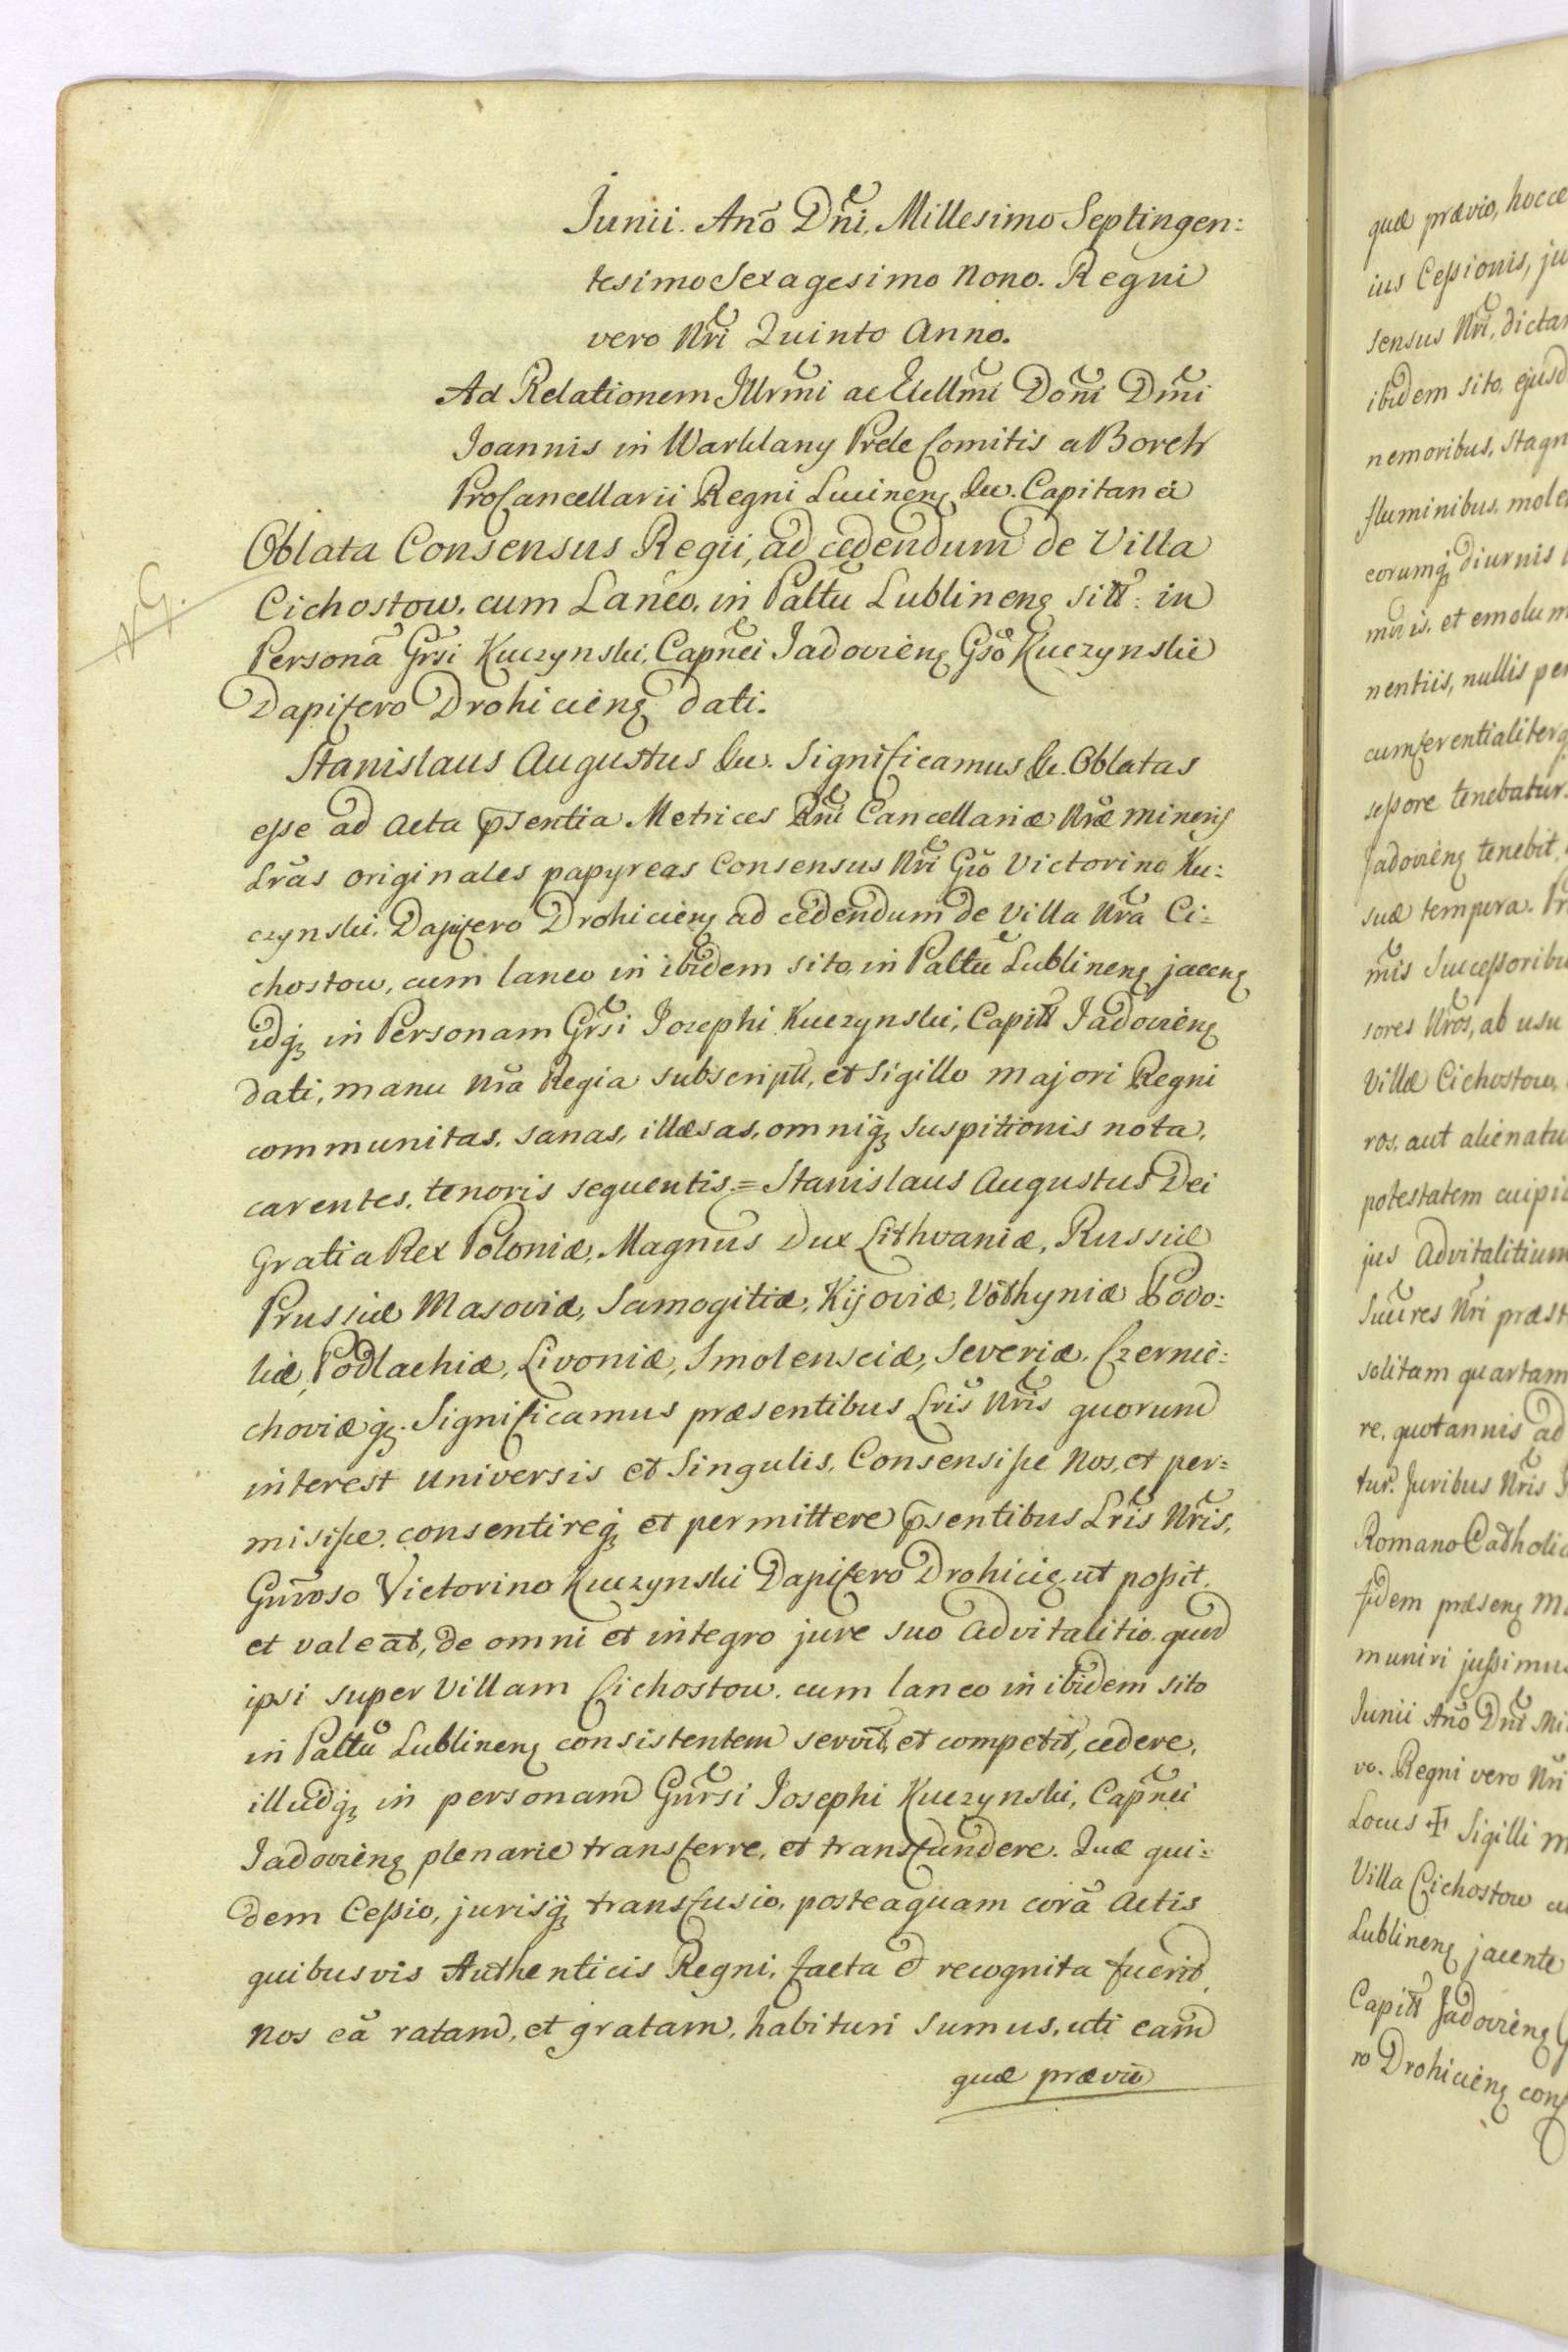 Junii. Año Dñi. Millesimo Septingen=
tesimo Sexagesimo Nono. Regni
vero Nri Quinto Anno.
Ad Relationem Illrmi ac Exellmi Doñi Dmi
Joannis in Warklany Prele Comitis a Borch
ProCancellarii Regni Lucinenꝫ &c. Capitanei
Oblata Consensus Regii, ad cedendum de Villa
Cichostow, cum Laneo, in Paltu Lublinenꝫ sitt: in
Personã Grsi Kuczynski, Capnei Jadovienꝫ Gso Kuczynski
Dapifero Drohicienꝫ dati.
Stanislaus Augustus &c. Significamus &c. Oblatas
esse ad Acta p̄sentia Metrices Rni Cancellariæ Nræ minoris
Lras originales papyreas Consensus Nri Gso Victorino Ku=
czynski, Dapifero Drohicienꝫ ad cedendum de Villa Nra Ci=
chostow, cum laneo in ibidem sito, in Paltu Lublinenꝫ jacenꝫ
idqꝫ in Personam Grsi Josephi Kuczynski, Capitt Jadovienꝫ
dati, manu Nra Regia subscriptt, et Sigillo majori Regni
communitas, sanas, illæsas, omniqꝫ suspitionis nota,
carentes, tenoris sequentis = Stanislaus Augustus Dei
Gratia Rex Poloniæ, Magnus Dux Lithvaniæ, Russiæ
Prussiæ Masoviæ, Samogitiæ, Kijoviæ, Volhyniæ Podo=
liæ, Podlachiæ, Livoniæ, Smolensciæ, Severiæ, Czernie=
choviæqꝫ. Significamus præsentibus Lris Nris quorum
interest universis et Singulis, Consensisse Nos, et per=
misisse, consentireqꝫ et permittere p̄sentibus Lris Nris,
Gnroso Victorino Kuczynski Dapifero Drohicieꝫ ut possit,
et valeat, de omni et integro jure suo advitalitio quod
ipsi super Villam Cichostow, cum laneo in ibidem sito
in Paltu Lublinenꝫ consistentem servit, et competit, cedere,
illudqꝫ in personam Gnrsi Josephi Kuczynski, Capnei
Jadovienꝫ plenarie transferre, et transfundere. Quæ qui=
dem Cessio, jurisqꝫ transfusio, posteaquam corã Actis
quibusvis Authenticis Regni, facta et recognita fuerit,
Nos eã ratam, et gratam, habituri sumus, uti eam
quæ prævio
N.G.
quæ prævio, hocce
ius Cessionis, ju
sensus Nri, dictam
ibidem sito, ejusd
nemoribus, stagn
fluminibus, mole
corumqꝫ diurnis
et emolum
nentiis, nullis pe
cumferentialiterq
sessore tenebatur
Jadovienꝫ tenebit
suæ tempora. Pr
mis Successoribu
sores Nros, ab usu
Villæ Cichostow,
ros, aut alienatu
potestatem cuipi
jus advitalitium
Suures Nri præst
solitam quartam
re, quotannis ad
tur. Juribus Nris
Romano Catholic
fidem præsenꝫ M
muniri jussimus
Junii Año Dni Mi
vo. Regni vero Nri
Locus ✠ Sigilli m
Villa Cichostow cu
Lublinenꝫ jacente
Capitt Jadovienꝫ
ro Drohicienꝫ cons